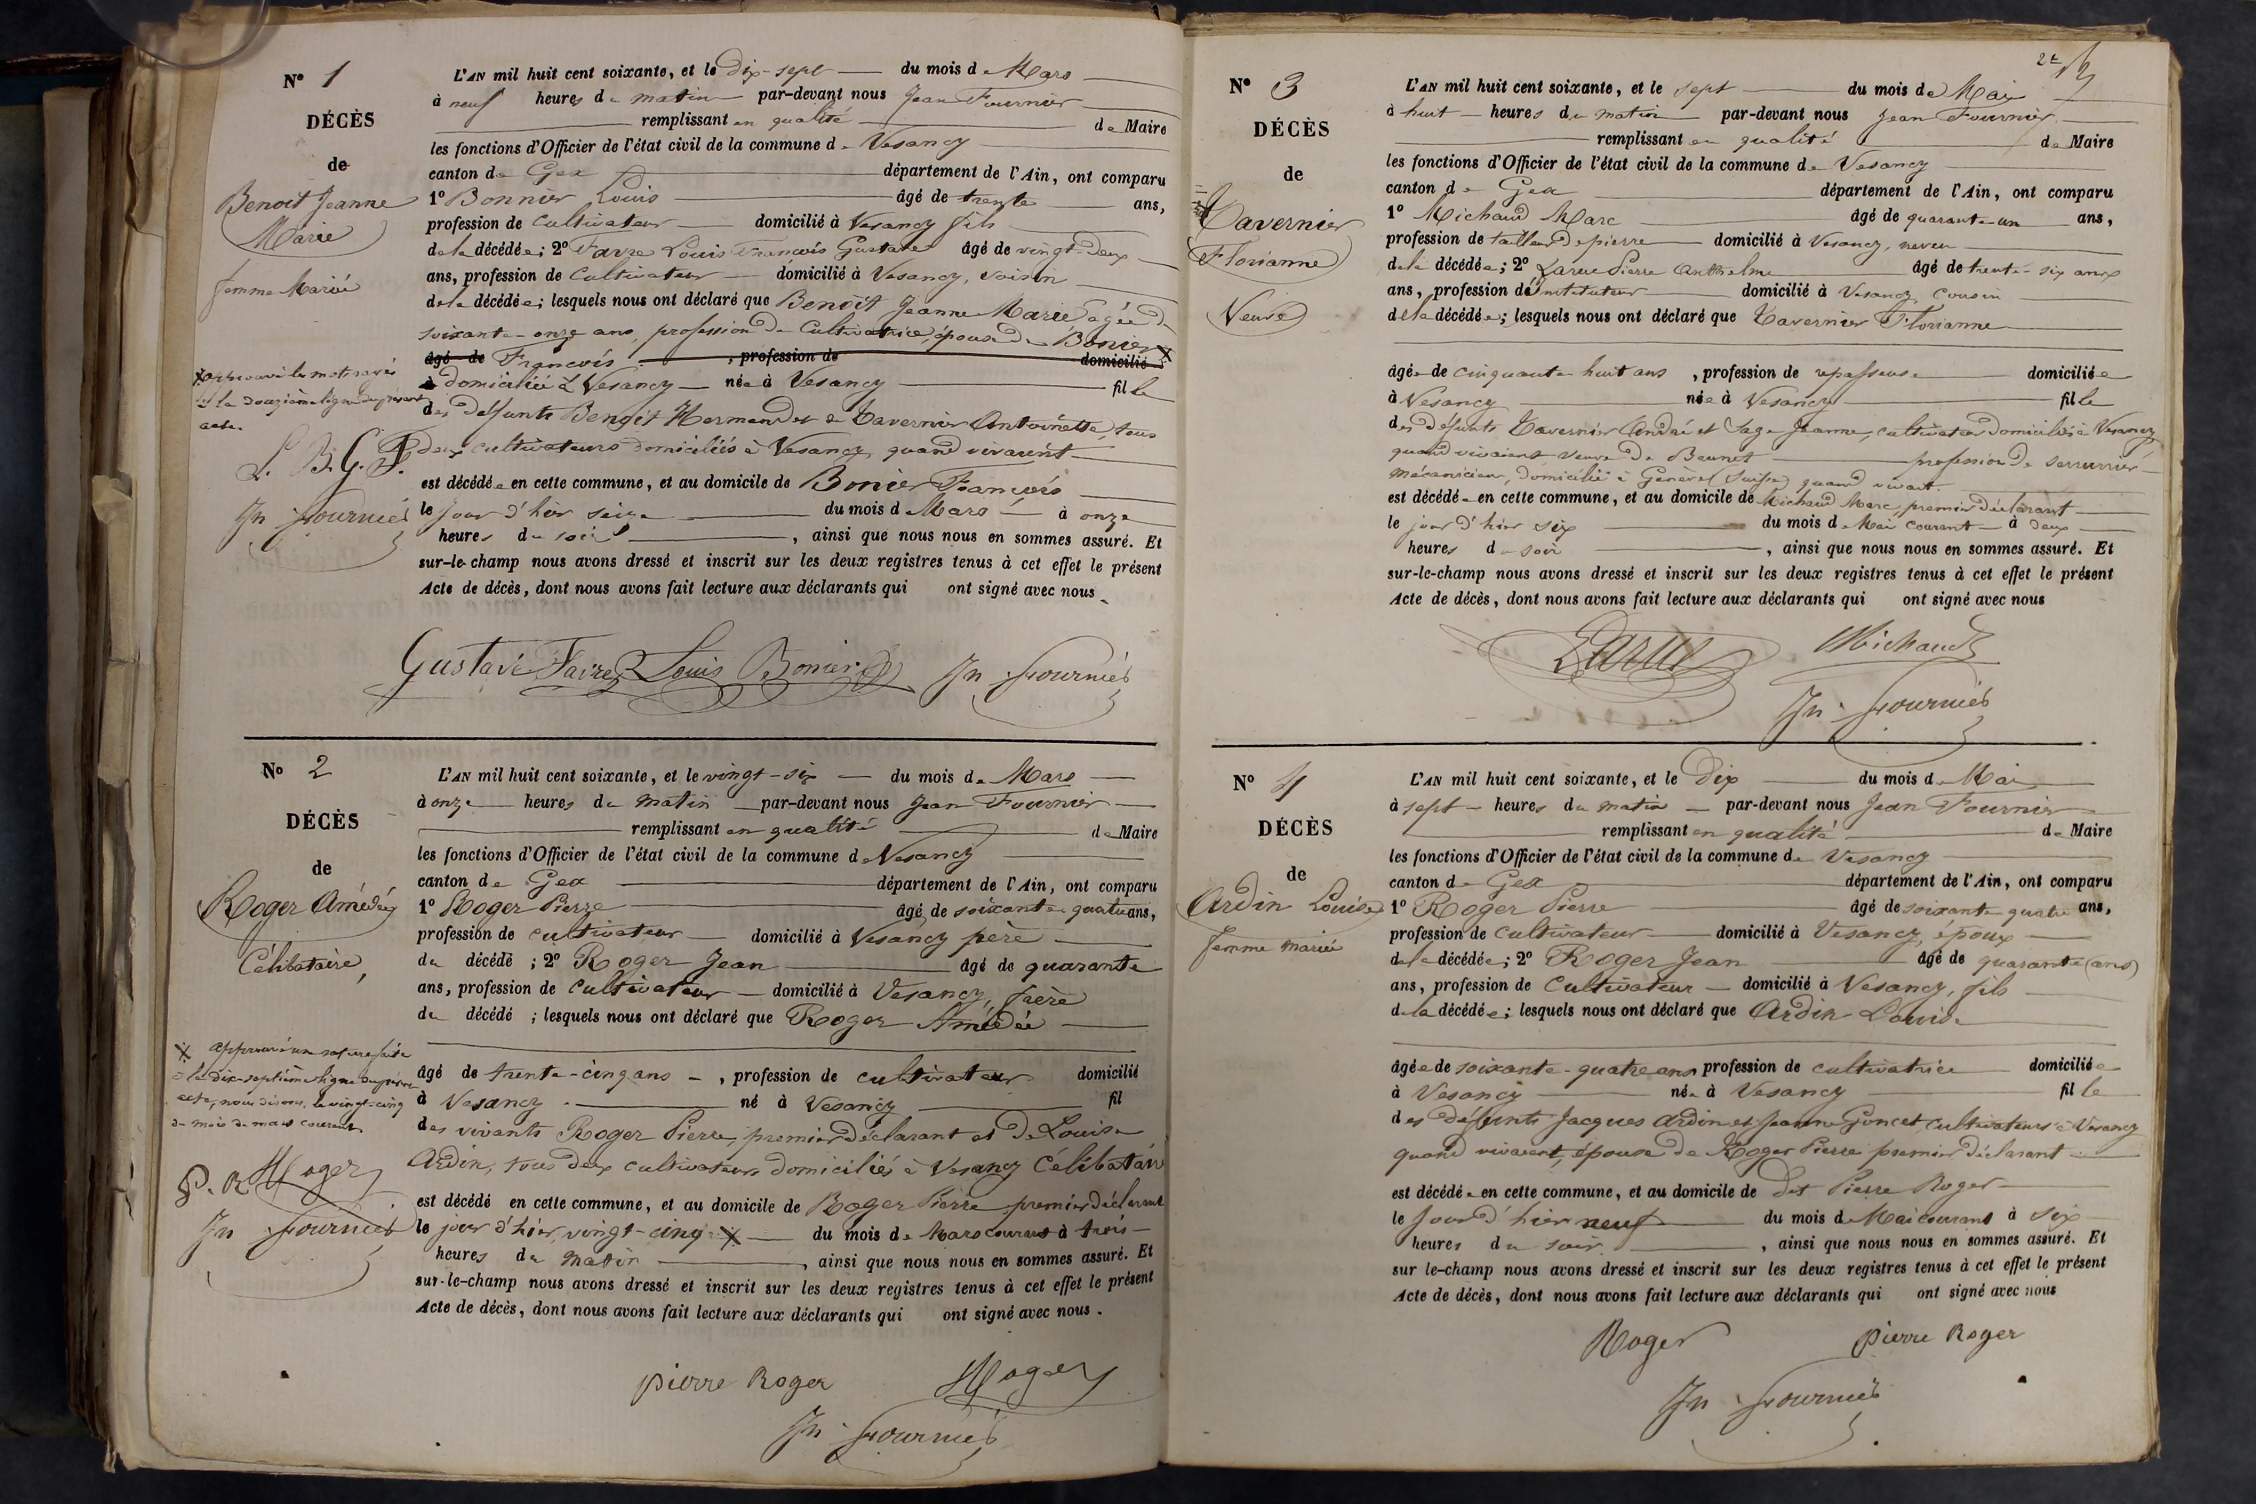 N° 1
DÉCÈS
de
Benoit Jeanne
Marie
femme Mariée
L'AN mil huit cent soixante, et le dix-sept du mois de Mars
à neuf heures du matin par-devant nous Jean Fournier
remplissant en qualité de Maire
les fonctions d'Officier de l'état civil de la commune de Vesancy
canton de Gex département de l'Ain, ont comparu
1° Bonnier Louis âgé de trente ans,
profession de Cultivateur domicilié à Vesancy fils
de la décédée; 2° Favre Louis François Gustave âgé de vingt-deux
ans, profession de Cultivateur domicilié à Vesancy, voisin
de la décédée; lesquels nous ont déclaré que Benoit Jeanne Marie agée de
soixante-onze ans, profession de Cultivatrice, épouse de Bonier
âgé de François , profession de domicilié
à domiciliée à Vesancy née à Vesancy fille
des défunts Benoit Hermand et de Tavernier Antoinette, tous
deux cultivateurs domiciliés à Vesancy quand vivaient
est décédée en cette commune, et au domicile de Bonier François
le jour d'hier seize du mois de Mars à onze
heures du soir , ainsi que nous nous en sommes assuré. Et
sur-le-champ nous avons dressé et inscrit sur les deux registres tenus à cet effet le présent
Acte de décès, dont nous avons fait lecture aux déclarants qui ont signé avec nous
approuvé les mots rayés
à la douzième ligne du présent
acte.
L. B. G. F.
Jn Fournier
Gustave Favre Louis Bonier Jn Fournier
N° 2
DÉCÈS
de
Roger Amédée
Célibataire,
L'AN mil huit cent soixante, et le vingt-six du mois de Mars
à onze heures du matin par-devant nous Jean Fournier
remplissant en qualité de Maire
les fonctions d'Officier de l'état civil de la commune de Vesancy
canton de Gex département de l'Ain, ont comparu
1° Roger Pierre âgé de soixante-quatre ans,
profession de cultivateur domicilié à Vesancy père
du décédé ; 2° Roger Jean âgé de quarante
ans, profession de Cultivateur domicilié à Vesancy, frère
du décédé ; lesquels nous ont déclaré que Roger Amédée
âgé de trente-cinq ans , profession de cultivateur domicilié
à Vesancy né à Vesancy fil
des vivants Roger Pierre, premier déclarant et de Louise
Ardin, tous deux cultivateurs domiciliés à Vesancy Célibataire
est décédé en cette commune, et au domicile de Roger Pierre premier déclarant
le jour d'hier, vingt-cinq du mois de Mars courant à trois
heures du matin , ainsi que nous nous en sommes assuré. Et
sur-le-champ nous avons dressé et inscrit sur les deux registres tenus à cet effet le présent
Acte de décès, dont nous avons fait lecture aux déclarants qui ont signé avec nous.
approuvé une rature faite
à la dix-septième ligne du présent
acte, nous disons, le vingt-cinq
du mois de mars courant.
P. R Roger
Jn Fournier
pierre Roger Roger
Jn Fournier
N° 3
DÉCÈS
de
Tavernier
Florianne
Veuve
L'AN mil huit cent soixante, et le sept du mois de Mai
à huit heures du matin par-devant nous Jean Fournier
remplissant en qualité de Maire
les fonctions d'Officier de l'état civil de la commune de Vesancy
canton de Gex département de l'Ain, ont comparu
1° Michaud Marc âgé de quarante-un ans,
profession de tailleur de pierre domicilié à Vesancy, neveu
de la décédée; 2° Larue Pierre Anthelme âgé de trente-six ans
ans, profession d'Instituteur domicilié à Vesancy, cousin
de la décédée; lesquels nous ont déclaré que Tavernier Florianne
âgée de cinquante-huit ans , profession de repasseuse domiciliée
à Vesancy née à Vesancy fille
des défunts Tavernier André et Sage Jeanne, cultivateurs domiciliés à Vesancy
quand vivaient veuve de Beunet profession de serrurier
mécanicien, domicilié à Genève (Suisse) quand vivait.
est décédée en cette commune, et au domicile de Michaud Marc, premier déclarant
le jour d'hier six du mois de Mai courant à deux
heures du soir , ainsi que nous nous en sommes assuré. Et
sur-le-champ nous avons dressé et inscrit sur les deux registres tenus à cet effet le présent
Acte de décès, dont nous avons fait lecture aux déclarants qui ont signé avec nous
Larue Michaud
Jn Fournier
N° 4
DÉCÈS
de
Ardin Louise
femme mariée
L'AN mil huit cent soixante, et le dix du mois de Mai
à sept heures du matin par-devant nous Jean Fournier
remplissant en qualité de Maire
les fonctions d'Officier de l'état civil de la commune de Vesancy
canton de Gex département de l'Ain, ont comparu
1° Roger Pierre âgé de soixante-quatre ans,
profession de Cultivateur domicilié à Vesancy, époux
de la décédée; 2° Roger Jean âgé de quarante (ans)
ans, profession de Cultivateur domicilié à Vesancy, fils
de la décédée; lesquels nous ont déclaré que Ardin Louise
âgée de soixante-quatre ans profession de cultivatrice domiciliée
à Vesancy née à Vesancy fille
des défunts Jacques Ardin et Jeanne Goncet, cultivateurs à Vesancy
quand vivaient, épouse de Roger Pierre premier déclarant
est décédée en cette commune, et au domicile de dit Pierre Roger
le Jour d'hier neuf du mois de Mai courant à six
heures du soir , ainsi que nous nous en sommes assuré. Et
sur le-champ nous avons dressé et inscrit sur les deux registres tenus à cet effet le présent
Acte de décès, dont nous avons fait lecture aux déclarants qui ont signé avec nous
Roger pierre Roger
Jn Fournier